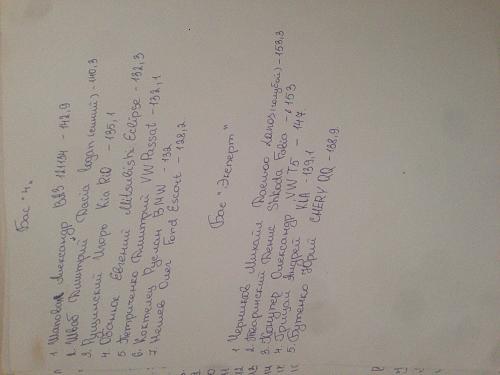 Бас "4"
1 Шаповал Александр ВАЗ 21134 - 142,9
2. Шваб Дмитрий Dacia Logan (синий) - 140,3
3. Пущинский Игорь Kia Rio - 135,1
4. Евгений Mitsubishi Eclipse - 132,3
5 Петриченко Дмитрий VW Passat - 132,1
6. Коктелец Руслан BMW - 132
7 Нешев Олег Ford Escort - 128,2
Бас "Эксперт"
1 Черников Михаил Daewoo Lanos (голубой) - 153,3
2. Денис Shkoda Fabia - 153
3. Александр VW T5 - 147
4. Грицай Андрей KIA - 139,1
5. Бутенко Юрий CHERY QQ - 138,9